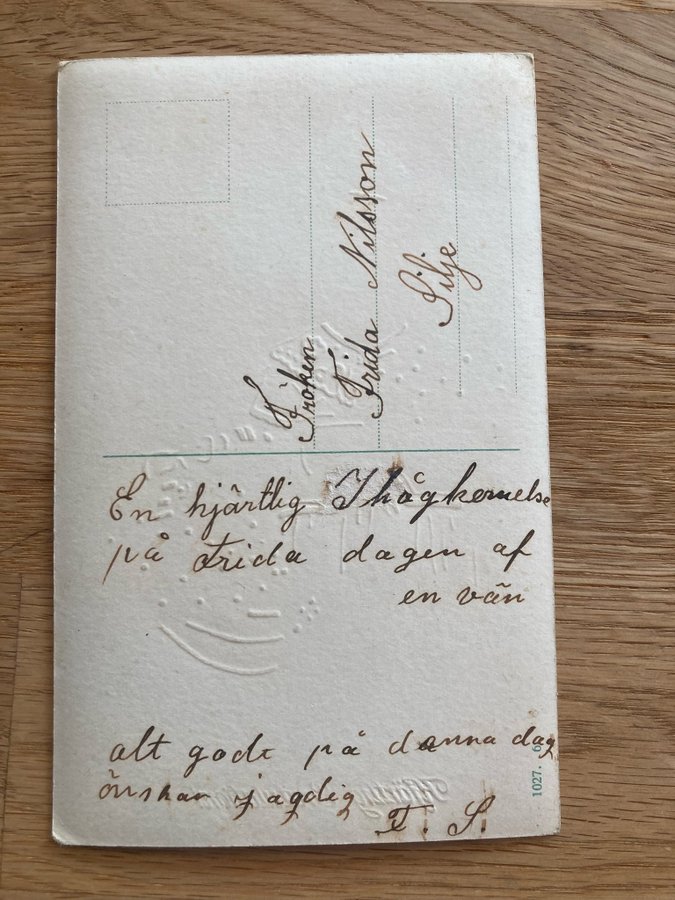 Fröken
Frida Nilsson
Silje
En hjärtlig Ihågkomelse
på Frida dagen af
en vän
alt godt på danna dag
önskar jag dig
F. S.
1027. 6